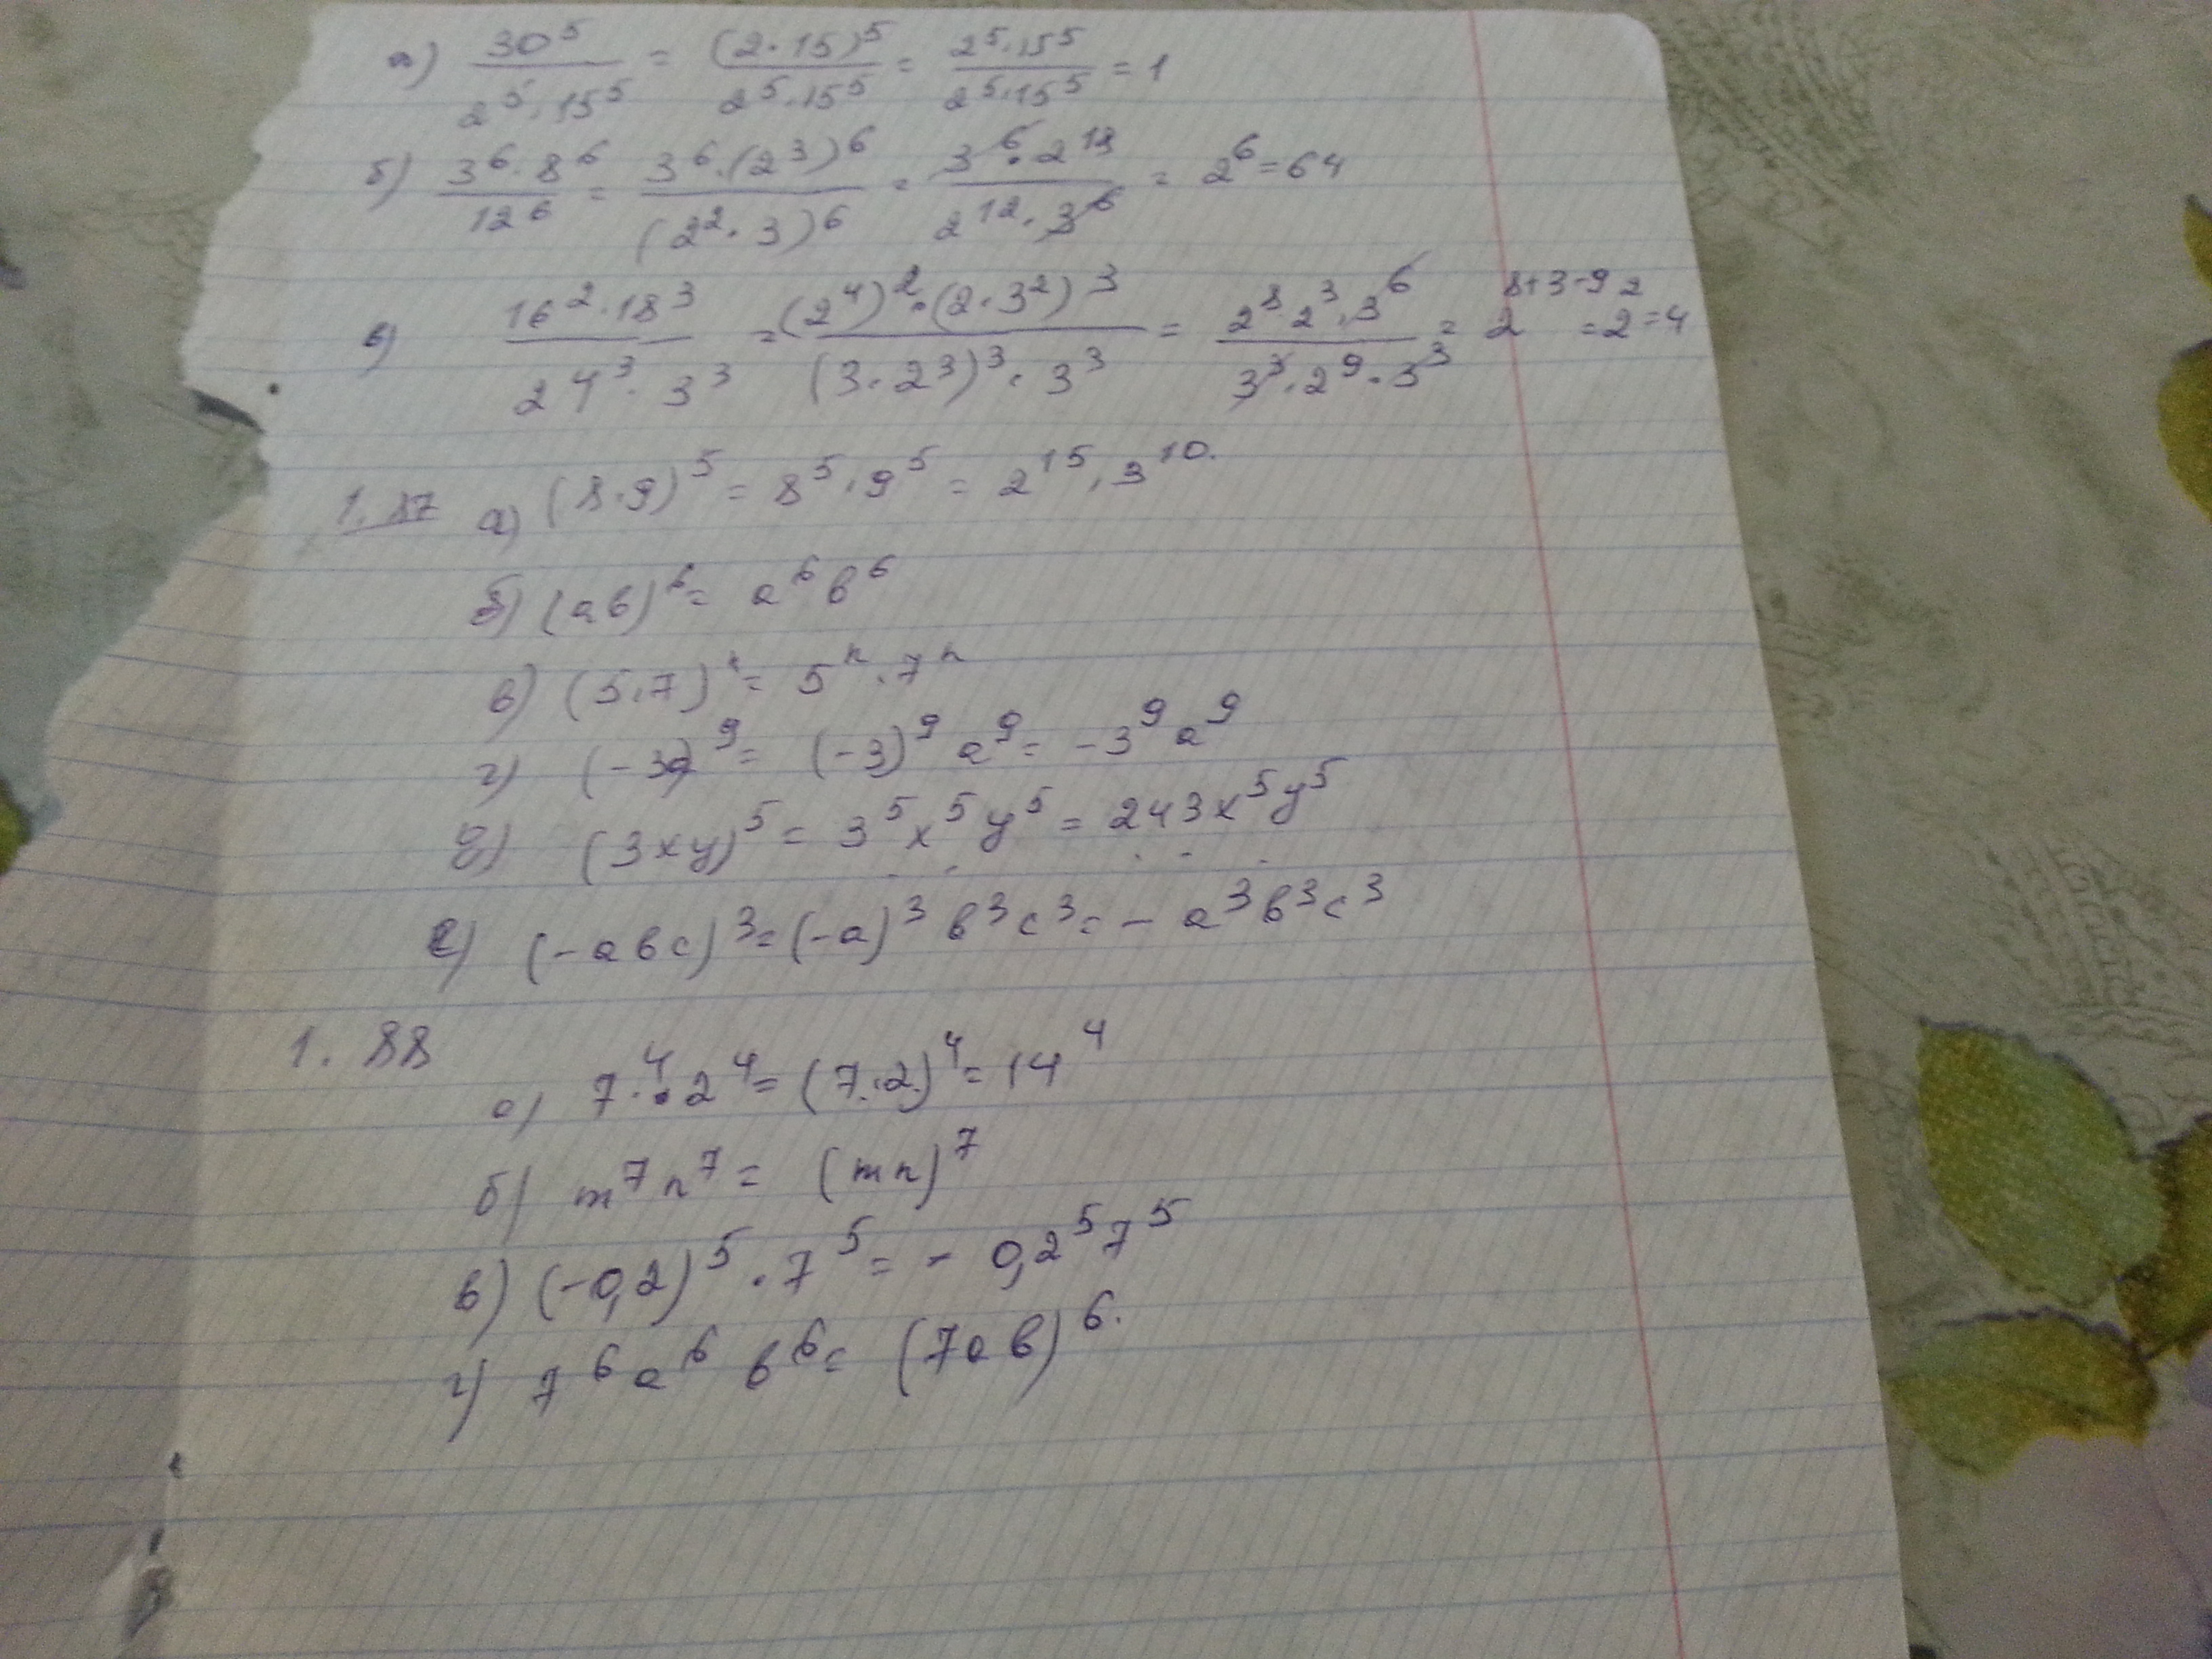 а) 30⁵/(2⁵·15⁵) = (2·15)⁵/(2⁵·15⁵) = (2⁵·15⁵)/(2⁵·15⁵) = 1
б) (3⁶·8⁶)/12⁶ = (3⁶·(2³)⁶)/(2²·3)⁶ = (3⁶·2¹⁸)/(2¹²·3⁶) = 2⁶ = 64
в) (16²·18³)/(24³·3³) = ((2⁴)²·(2·3²)³)/((3·2³)³·3³) = (2⁸·2³·3⁶)/(3³·2⁹·3³) = 2⁸⁺³⁻⁹ = 2² = 4
1.87 а) (8·9)⁵ = 8⁵·9⁵ = 2¹⁵·3¹⁰.
б) (ав)⁶ = а⁶в⁶
в) (5·7)ⁿ = 5ⁿ·7ⁿ
г) (-3а)⁹ = (-3)⁹а⁹ = -3⁹а⁹
д) (3xy)⁵ = 3⁵x⁵y⁵ = 243x⁵y⁵
е) (-авс)³ = (-а)³в³с³ = -а³в³с³
1.88
а) 7⁴·2⁴ = (7·2)⁴ = 14⁴
б) m⁷n⁷ = (mn)⁷
в) (-0,2)⁵·7⁵ = -0,2⁵7⁵
г) 7⁶а⁶в⁶ = (7ав)⁶.